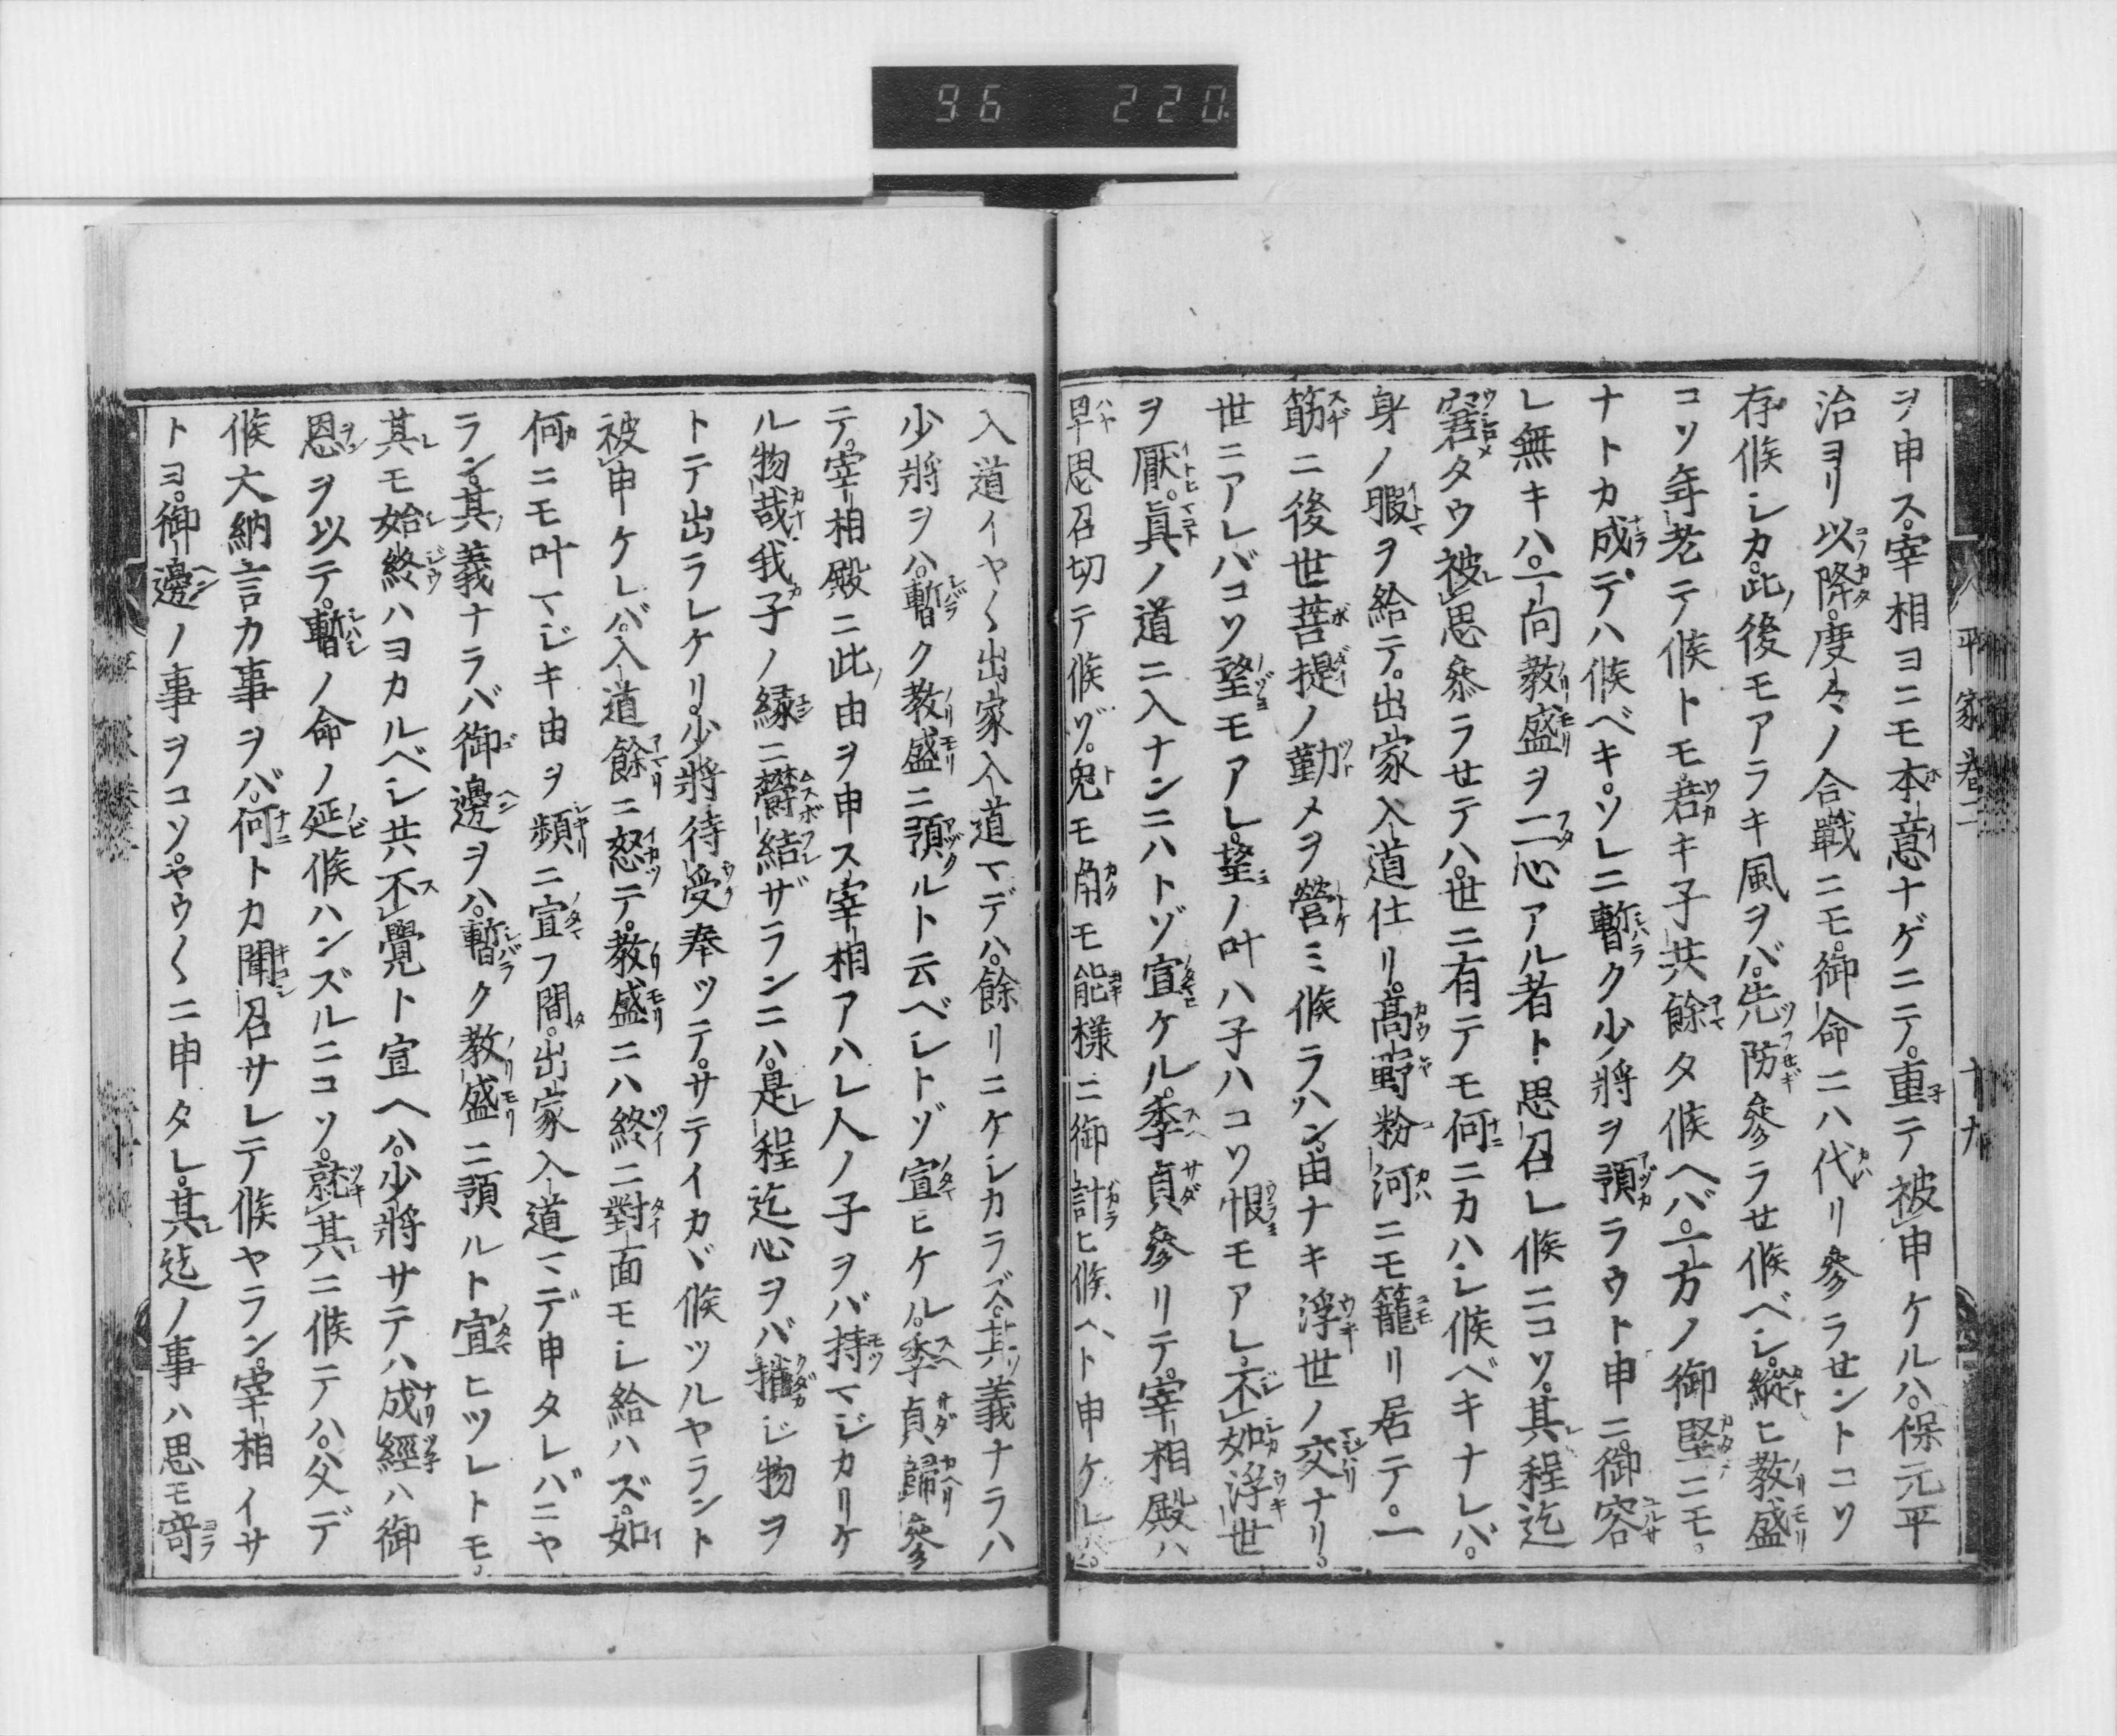 96 220.
平家卷二 十九
ヲ申ス。宰相ヨニモ本意ナゲニテ。重テ被申ケルハ。保元平
治ヨリ以降。度々ノ合戰ニモ。御命ニハ代リ參ラセントコソ
存候シカ。此後モアラキ風ヲバ。先防參ラセ候ベシ。縱ヒ教盛
コソ年老テ候トモ。若キ子共餘タ候ヘバ。一方ノ御堅ニモ。
ナトカ成デハ候ベキ。ソレニ暫ク少將ヲ預ラウト申ニ。御容
レ無キハ。一向教盛ヲ二心アル者ト思召レ候ニコソ。其程迄
窘タウ被思參ラセテハ。世ニ有テモ何ニカハシ候ベキナレバ。
身ノ暇ヲ給テ。出家入道仕リ。高野粉河ニモ籠リ居テ。一
筋ニ後世菩提ノ勤メヲ營ミ候ラハン。由ナキ浮世ノ交ナリ。
世ニアレバコソ望モアレ。望ノ叶ハ子ハコソ恨モアレ。不如浮世
ヲ厭。眞ノ道ニ入ナンニハトゾ宣ケル。季貞參リテ。宰相殿ハ
早思召切テ候ゾ。兔モ角モ能樣ニ御計ヒ候ヘト申ケレバ。
入道イヤ〱出家入道マデハ。餘リニケシカラズ。其義ナラハ
少將ヲハ。暫ク教盛ニ預ルト云ベシトゾ宣ヒケル。季貞歸參
テ。宰相殿ニ此由ヲ申ス。宰相アハレ人ノ子ヲバ持マジカリケ
ル物哉。我子ノ縁ニ欝結ザランニハ。是程迄心ヲバ摧ジ物ヲ
トテ出ラレケリ。少將待受奉ツテ。サテイカヾ候ツルヤラント
被申ケレバ。入道餘ニ怒テ。教盛ニハ終ニ對面モシ給ハズ。如
何ニモ叶マジキ由ヲ頻ニ宣フ間。出家入道マデ申タレバニヤ
ラン。其義ナラバ御邊ヲハ。暫ク教盛ニ預ルト宣ヒツレトモ。
其モ始終ハヨカルベシ共不覺ト宣ヘハ。少將サテハ成經ハ御
恩ヲ以テ。暫ノ命ノ延候ハンズルニコソ。就其ニ候テハ。父デ
候大納言カ事ヲバ。何トカ聞召サレテ候ヤラン。宰相イサ
トヨ。御邊ノ事ヲコソ。ヤウ〱ニ申タレ。其迄ノ事ハ思モ寄